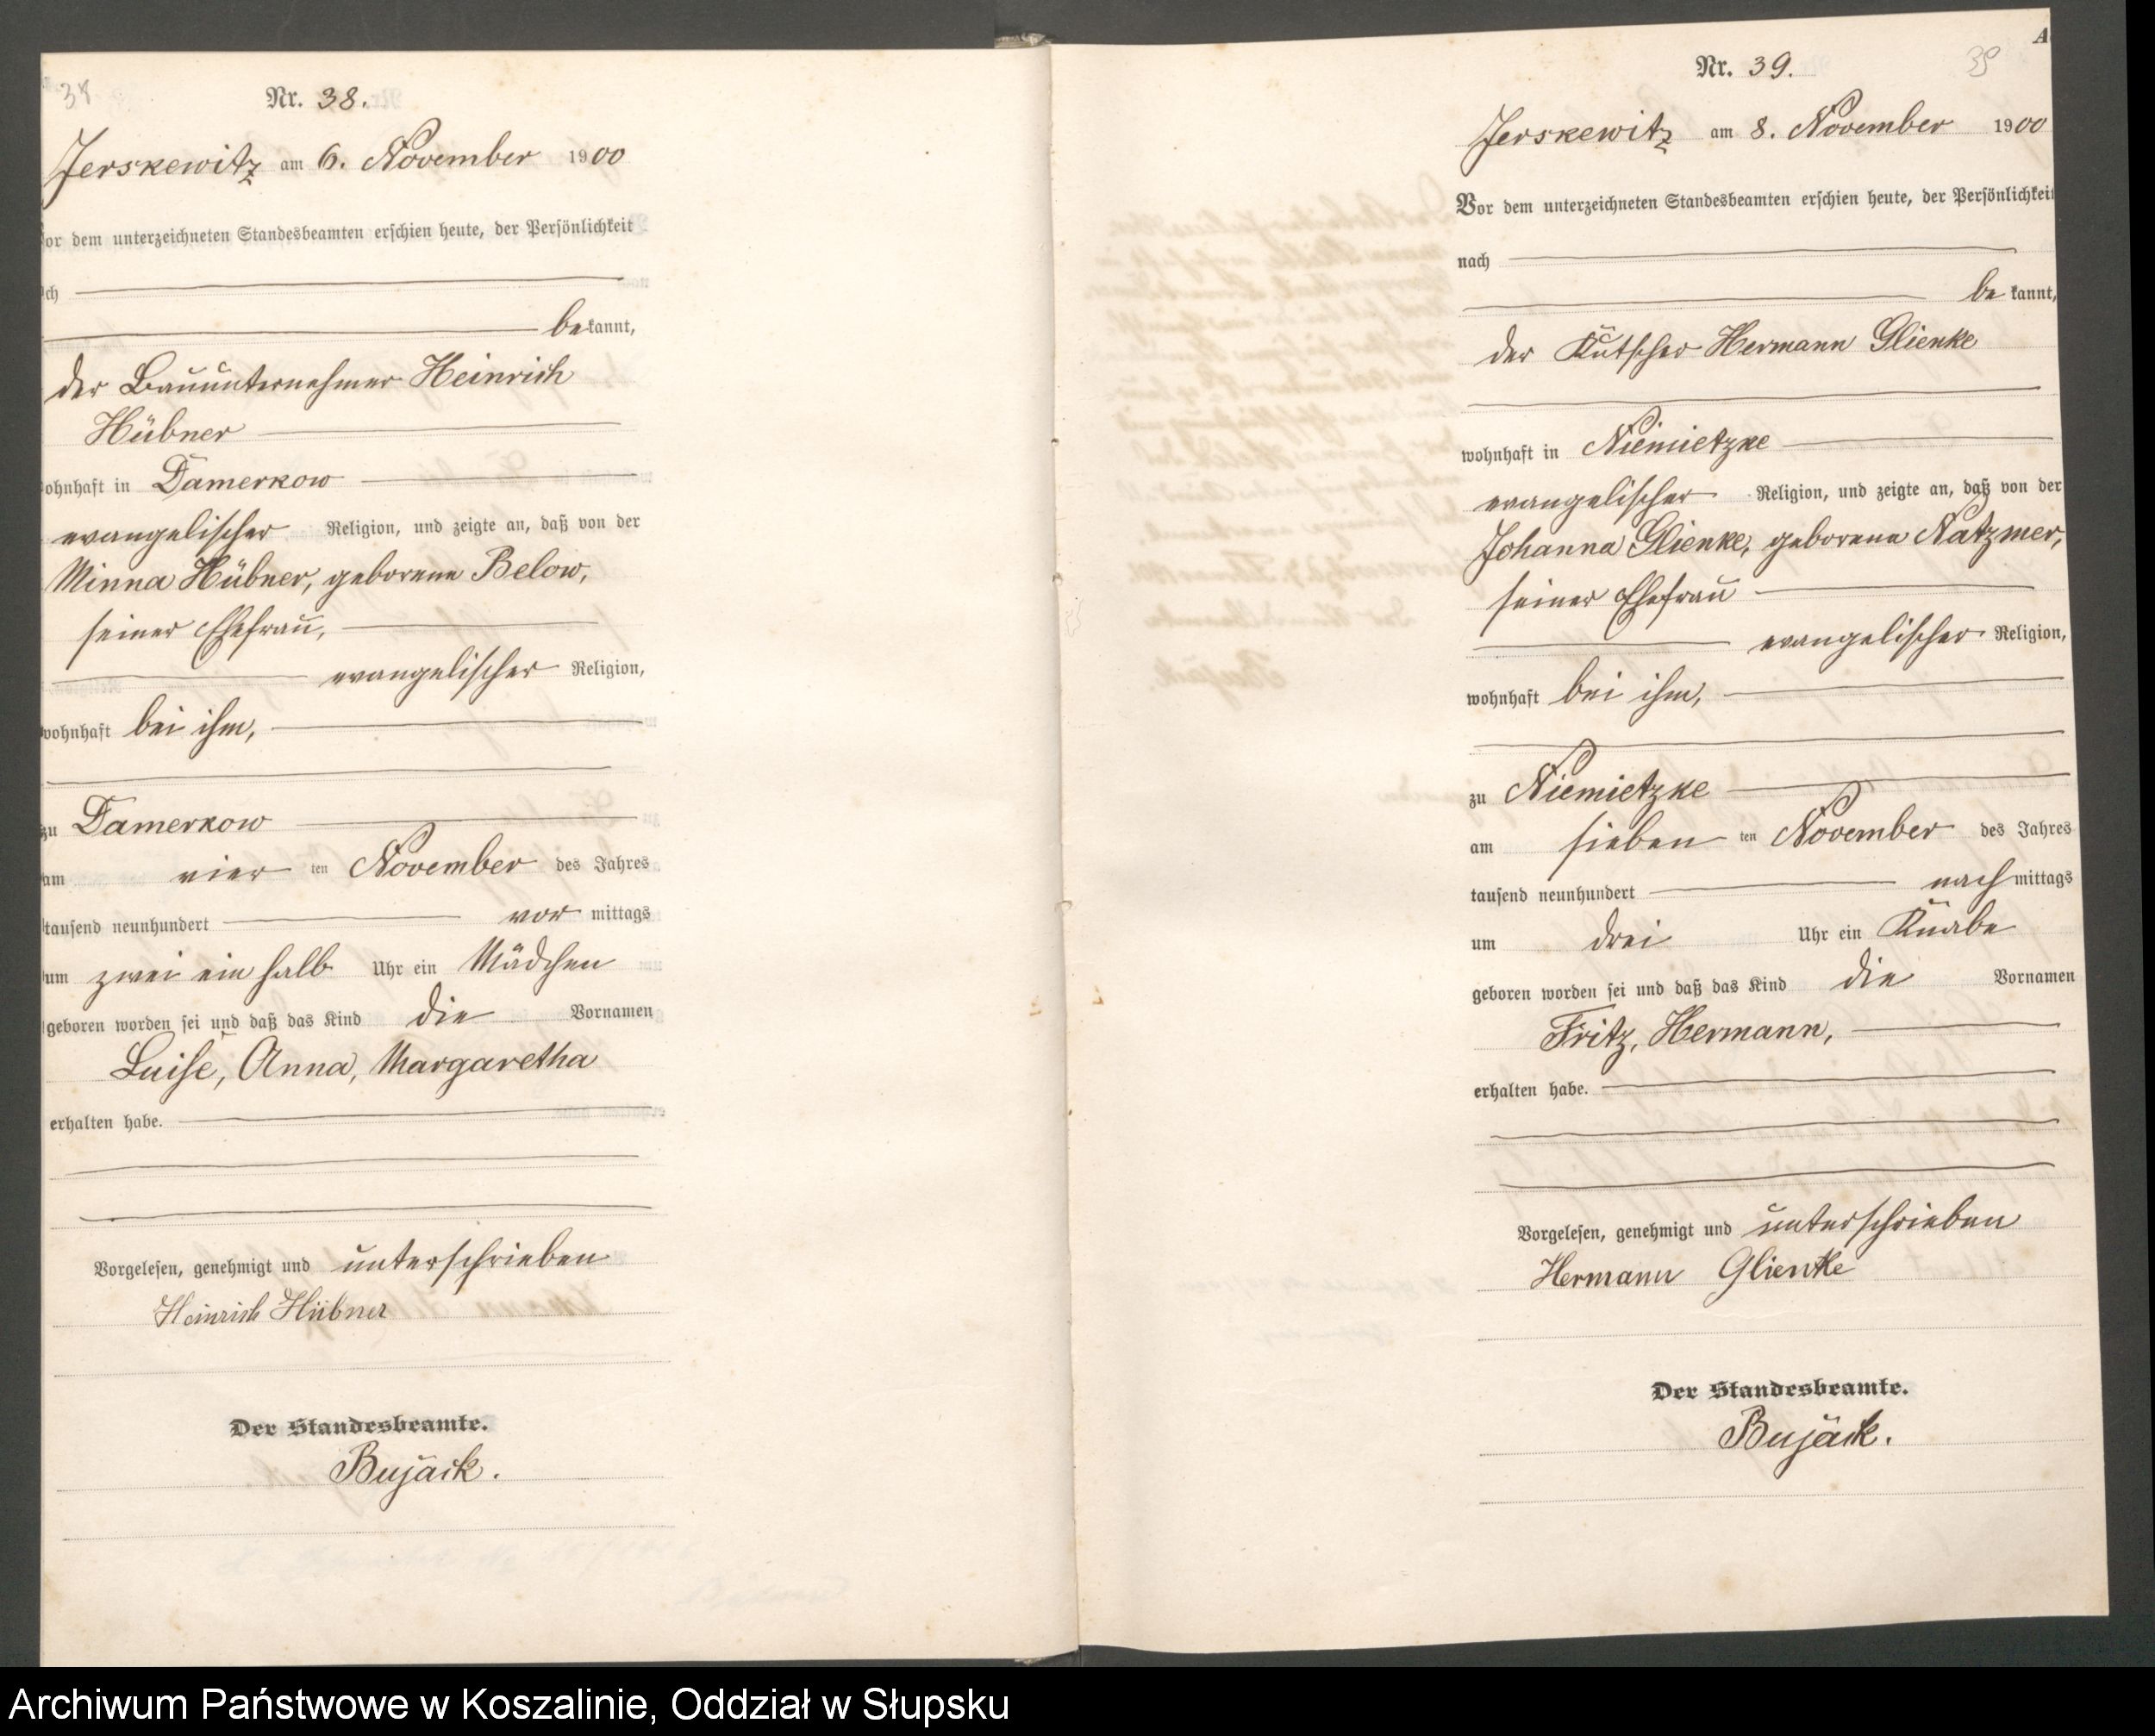 38
Nr. 38.
Jerskewitz am 6. November 1900
or dem unterzeichneten Standesbeamten erschien heute, der Persönlichkeit
ch
bekannt,
der Bauunternehmer Heinrich
Hübner
ohnhaft in Damerkow
evangelischer Religion, und zeigte an, daß von der
Minna Hübner, geborene Below,
seiner Ehefrau,
evangelischer Religion,
wohnhaft bei ihm,
zu Damerkow
am vier ten November des Jahres
tausend neunhundert vor mittags
um zwei ein halb Uhr ein Mädchen
geboren worden sei und daß das Kind die Vornamen
Luise, Anna, Margaretha
erhalten habe.
Vorgelesen, genehmigt und unterschrieben
Heinrich Hübner
Der Standesbeamte.
Bujack.
A
39
Nr. 39.
Jerskewitz am 8. November 1900
Vor dem unterzeichneten Standesbeamten erschien heute, der Persönlichkeit
nach
be kannt,
der Kutscher Hermann Glienke
wohnhaft in Niemietzke
evangelischer Religion, und zeigte an, daß von der
Johanna Glienke, geborene Natzmer,
seiner Ehefrau
evangelischer Religion,
wohnhaft bei ihm,
zu Niemietzke
am sieben ten November des Jahres
tausend neunhundert nach mittags
um drei Uhr ein Knabe
geboren worden sei und daß das Kind die Vornamen
Fritz, Hermann,
erhalten habe.
Vorgelesen, genehmigt und unterschrieben
Hermann Glienke
Der Standesbeamte.
Bujack.
Archiwum Państwowe w Koszalinie, Oddział w Słupsku